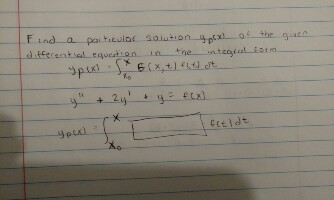 Find a particular solution yp(x) of the given
differential equation in the integral form
yp(x) = ∫x0^x G(x,t) f(t) dt
y" + 2y' + y = f(x)
yp(x) = ∫x0^x f(t) dt